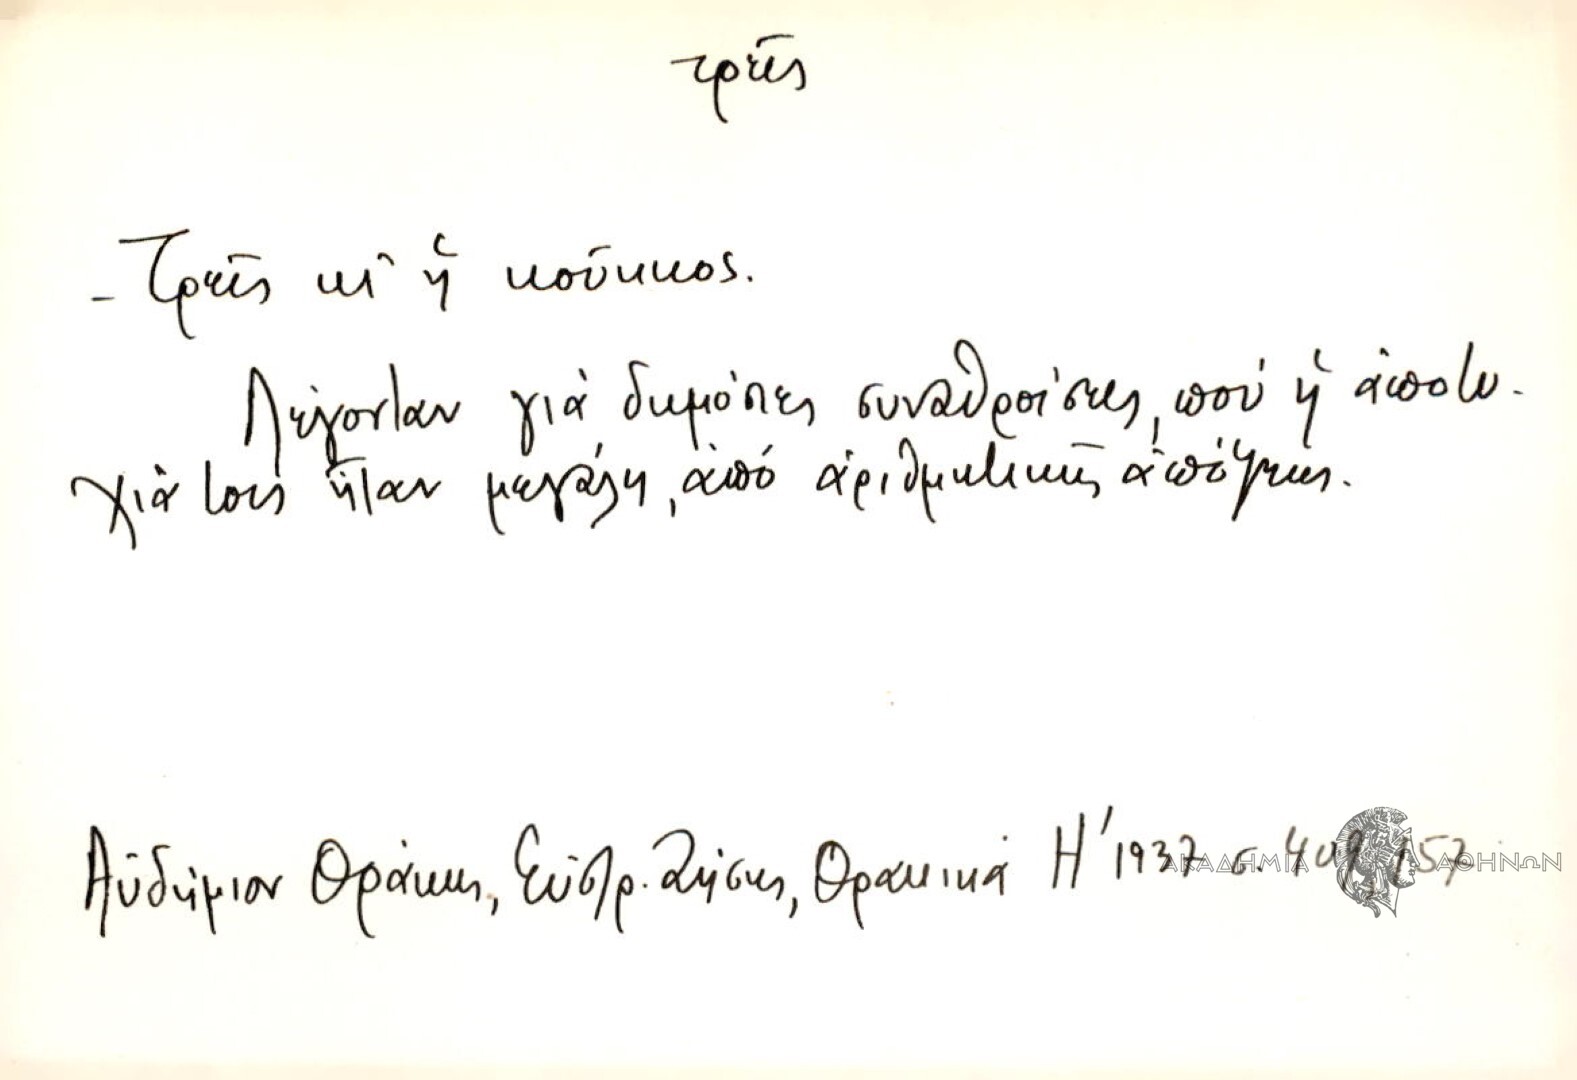 τρεῖς
- Τρεῖς κι ἡ κοῦκκος.
Λέγονταν γιὰ δημόσιες συναθροίσεις, ποὺ ἡ ἀποτυ-
χιὰ τους ἦταν μεγάλη, ἀπὸ ἀριθμητικῆς ἀπόψεως.
Αὐδήμιον Θράκης, Εὐστρ. Ζήσης, Θρακικά Η' 1937 σ. 409, 157
ΑΚΑΔΗΜΙΑ ΑΘΗΝΩΝ